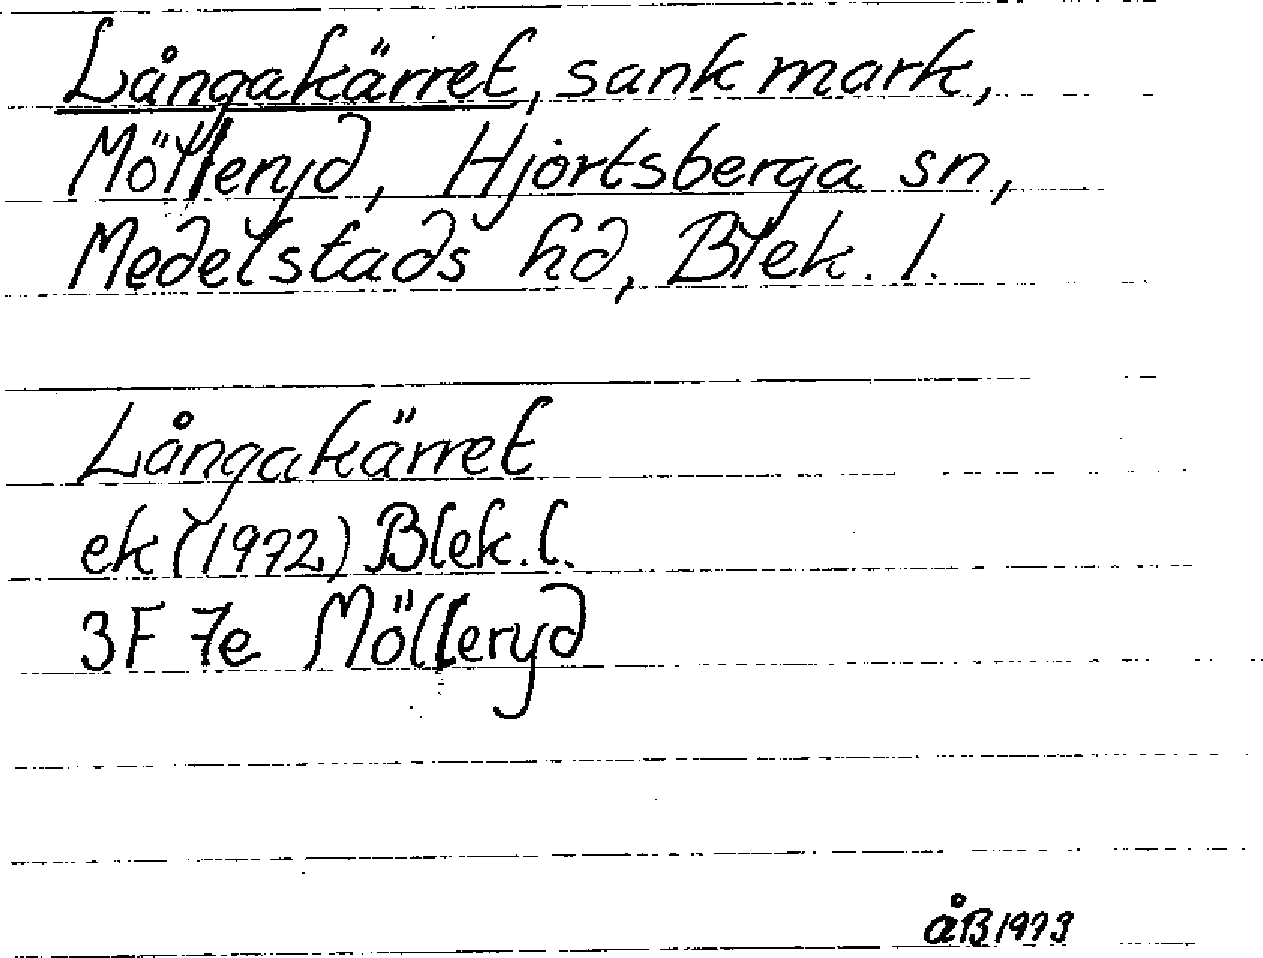 Långakärret, sank mark,
Mölleryd, Hjortsberga sn,
Medelstads hd, Blek. l.
Långakärret
ek (1972) Blek. l.
3F 7e Mölleryd
åB 1973